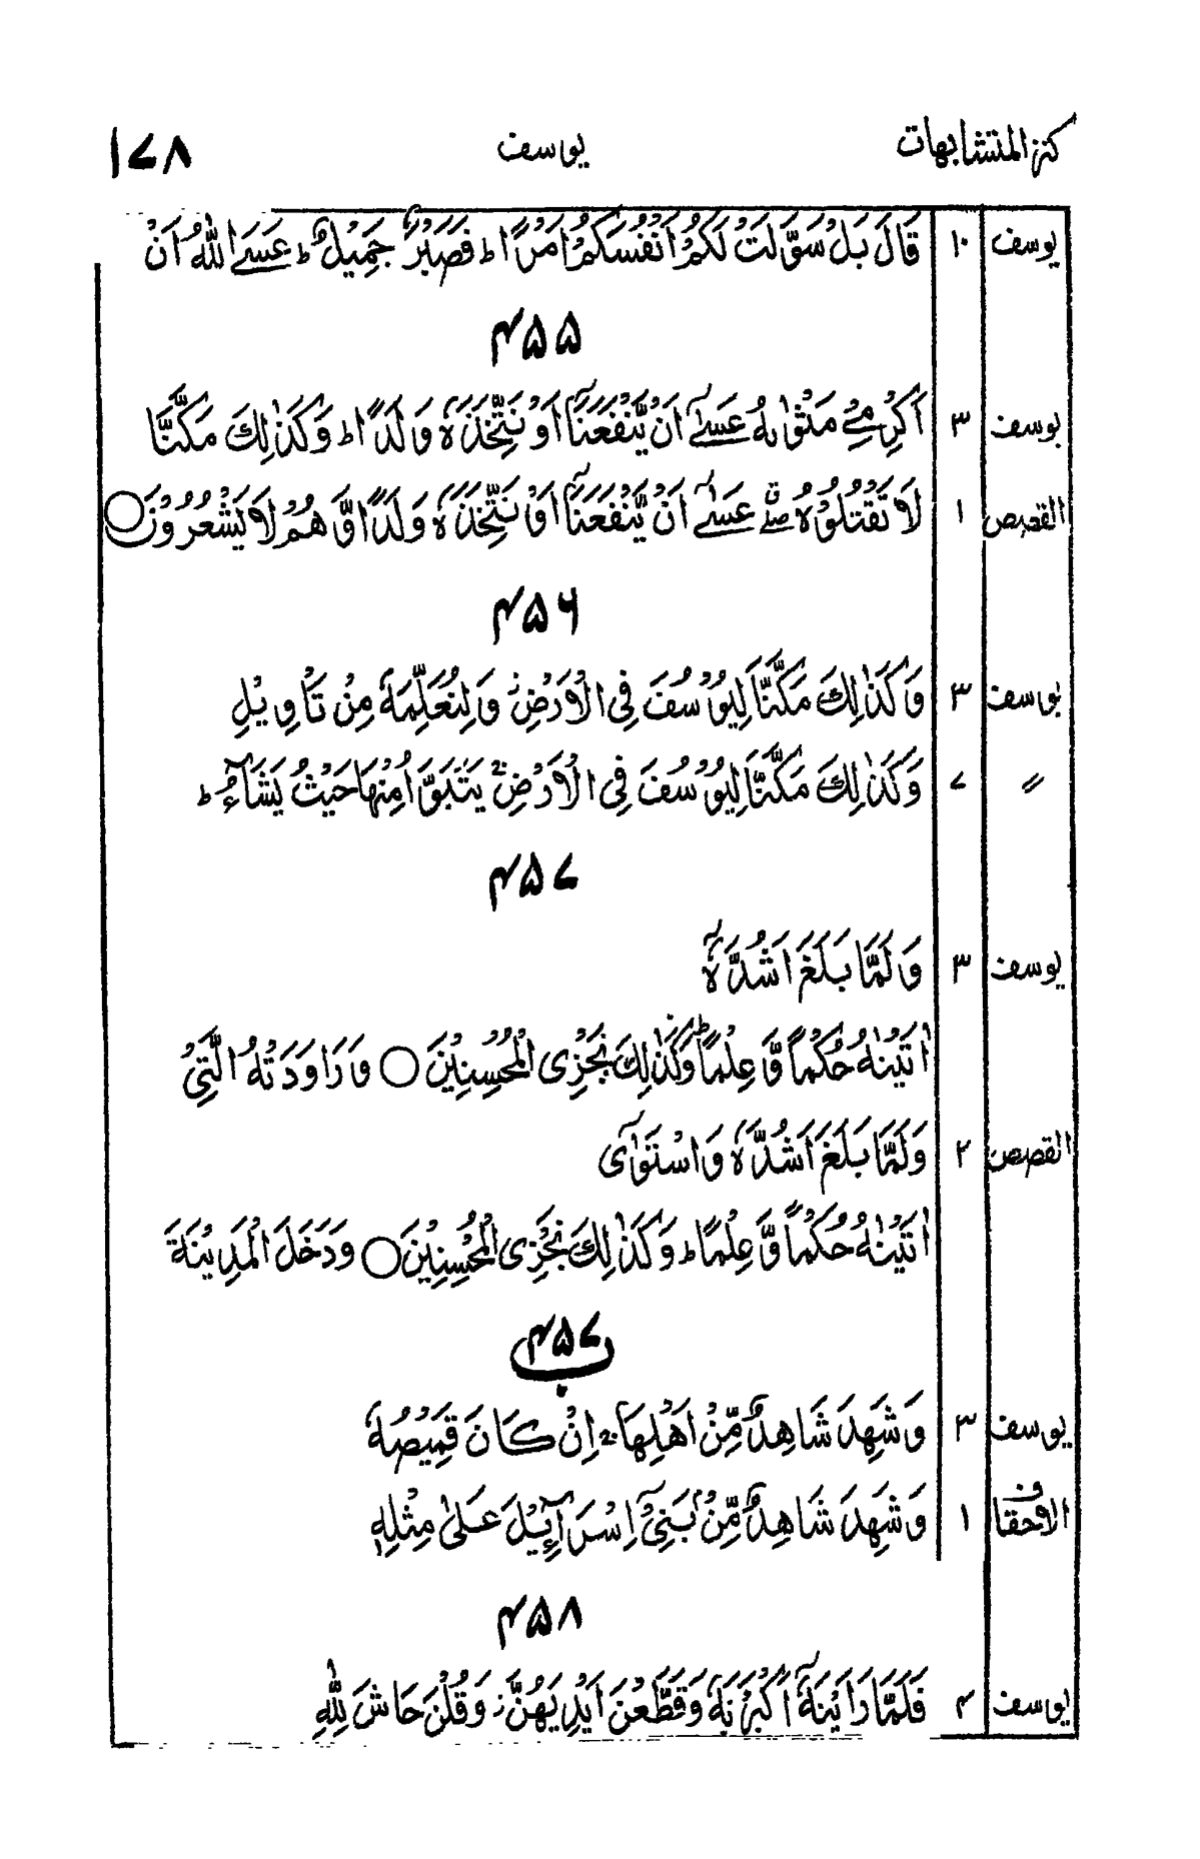 كنز المتشابهات يوسف ١٧٨
يوسف ١٠ قَالَ بَلْ سَوَّلَتْ لَكُمْ اَنْفُسُكُمْ اَمْرًا ط فَصَبْرٌ جَمِيْلٌ ط عَسَے اللّٰهُ اَنْ
۴۵۵
يوسف ٣ اَكْرِمِیْ مَثْوٰىهُ عَسٰۤے اَنْ يَّنْفَعَنَاۤ اَوْ نَتَّخِذَهٗ وَلَدًا ط وَكَذٰلِكَ مَكَّنَّا
القصص ١ لَا تَقْتُلُوْهُ صلے عَسٰۤے اَنْ يَّنْفَعَنَاۤ اَوْ نَتَّخِذَهٗ وَلَدًا وَّ هُمْ لَا يَشْعُرُوْنَ ○
۴۵۶
يوسف ٣ وَكَذٰلِكَ مَكَّنَّا لِيُوْسُفَ فِی الْاَرْضِ ز وَلِنُعَلِّمَهٗ مِنْ تَاْوِيْلِ
〃 ٧ وَكَذٰلِكَ مَكَّنَّا لِيُوْسُفَ فِی الْاَرْضِ ج يَتَبَوَّاُ مِنْهَا حَيْثُ يَشَآءُ ط
۴۵۷
يوسف ٣ وَلَمَّا بَلَغَ اَشُدَّهٗۤ
اٰتَيْنٰهُ حُكْمًا وَّ عِلْمًا ط وَكَذٰلِكَ نَجْزِی الْمُحْسِنِيْنَ ○ وَرَاوَدَتْهُ الَّتِیْ
القصص ٢ وَلَمَّا بَلَغَ اَشُدَّهٗ وَاسْتَوٰۤی
اٰتَيْنٰهُ حُكْمًا وَّ عِلْمًا ط وَكَذٰلِكَ نَجْزِی الْمُحْسِنِيْنَ ○ وَدَخَلَ الْمَدِيْنَةَ
۴۵۷ ب
يوسف ٣ وَشَهِدَ شَاهِدٌ مِّنْ اَهْلِهَا ج اِنْ كَانَ قَمِيْصُهٗ
الاحقاف ١ وَشَهِدَ شَاهِدٌ مِّنْۢ بَنِیْۤ اِسْرَآءِيْلَ عَلٰی مِثْلِهٖ
۴۵۸
يوسف ۴ فَلَمَّا رَاَيْنَهٗۤ اَكْبَرْنَهٗ وَقَطَّعْنَ اَيْدِيَهُنَّ ز وَقُلْنَ حَاشَ لِلّٰهِ